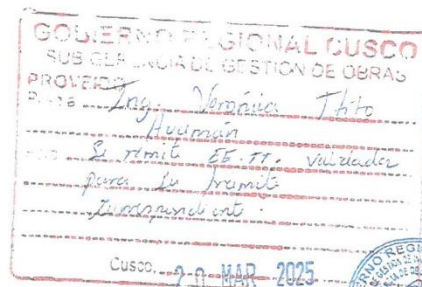 GOBIERNO REGIONAL CUSCO
SUB GERENCIA DE GESTION DE OBRAS
PROVEIDO
Ing. Verónica Ttito
Huamán
Se remite EE.TT. validados
para su tramite
correspondiente.
Cusco, 20 MAR 2025